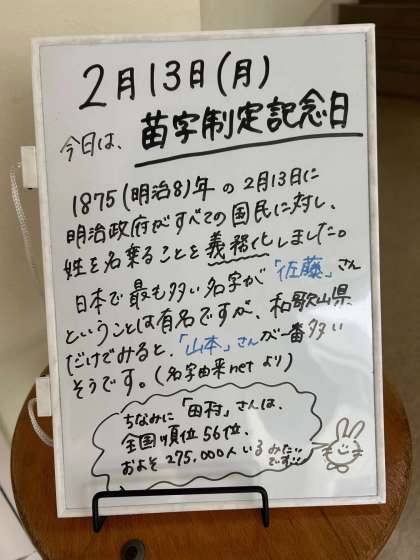 2月13日(月)
今日は、苗字制定記念日
1875(明治8)年の2月13日に
明治政府がすべての国民に対し、
姓を名乗ることを義務化しました。
日本で最も多い名字が「佐藤」さん
ということは有名ですが、和歌山県
だけでみると、「山本」さんが一番多い
そうです。(名字由来netより)
ちなみに「田村」さんは、
全国順位56位、
およそ275.000人いるみたい
です!!